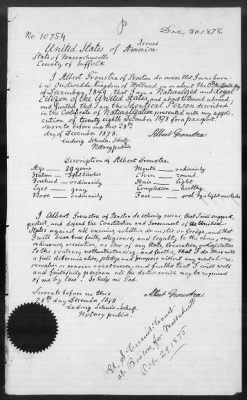 No. 10754
Issued
Dec. 30, 1878.
United States of America
State of Massachusetts
County of Suffolk
I Albert of Boston do swear that I was born
in Amsterdam Kingdom of Holland on or about the
of December, 1849 that I am a Naturalized and Loyal
Citizen of the United States, and about to travel abroad,
and further that I am the Identical Person described
in the Certificate of Naturalization presented with my application
of twenty eighth December, 1878 for passport.
Sworn to before me this 28th
day of December 1878.
Albert
Notary public
Description of Albert
Age — 29 years
Mouth — ordinary
Stature —
Chin — round
Forehead — ordinary
Hair — light
Eyes — gray
Complexion — healthy
Nose — ordinary
Face — oval
I Albert of Boston do solemnly swear that I will support,
protect, and defend the Constitution and Government of the United
States against all enemies, whether domestic or foreign, and that
I will bear true faith, allegiance, and loyalty to the same, any
ordinance, resolution, or law of any State, Convention, or Legislature
to the contrary notwithstanding; and further, that I do this with
a full determination, pledge, and purpose, without any mental reservation
or evasion whatsoever; and further that I will well
and faithfully perform all the duties which may be required
of me by law. So help me God.
Sworn to before me this
28th day December 1878
Albert
Notary public.